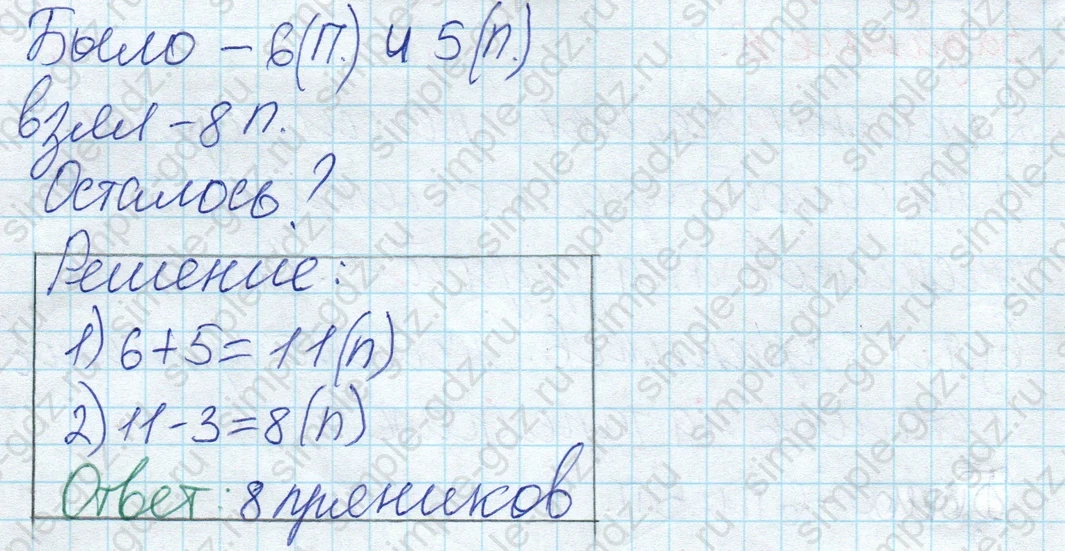 Было - 6(П.) и 5(п.)
взял - 8 п.
Осталось ?
Решение:
1) 6+5=11(п)
2) 11-3=8(п)
Ответ: 8 пряников
simple-gdz.ru